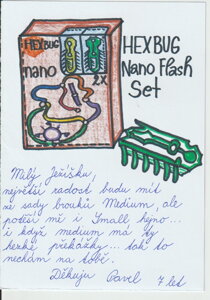 HEXBUG
nano
2X
HEXBUG
Nano Flash
Set
Milý Ježíšku,
největší radost budu mít
ze sady brouků Medium, ale
potěší mě i Small hejno...
i když medium má ty
hezké překážky... tak to
nechám na tobě.
Děkuju Pavel 7 let